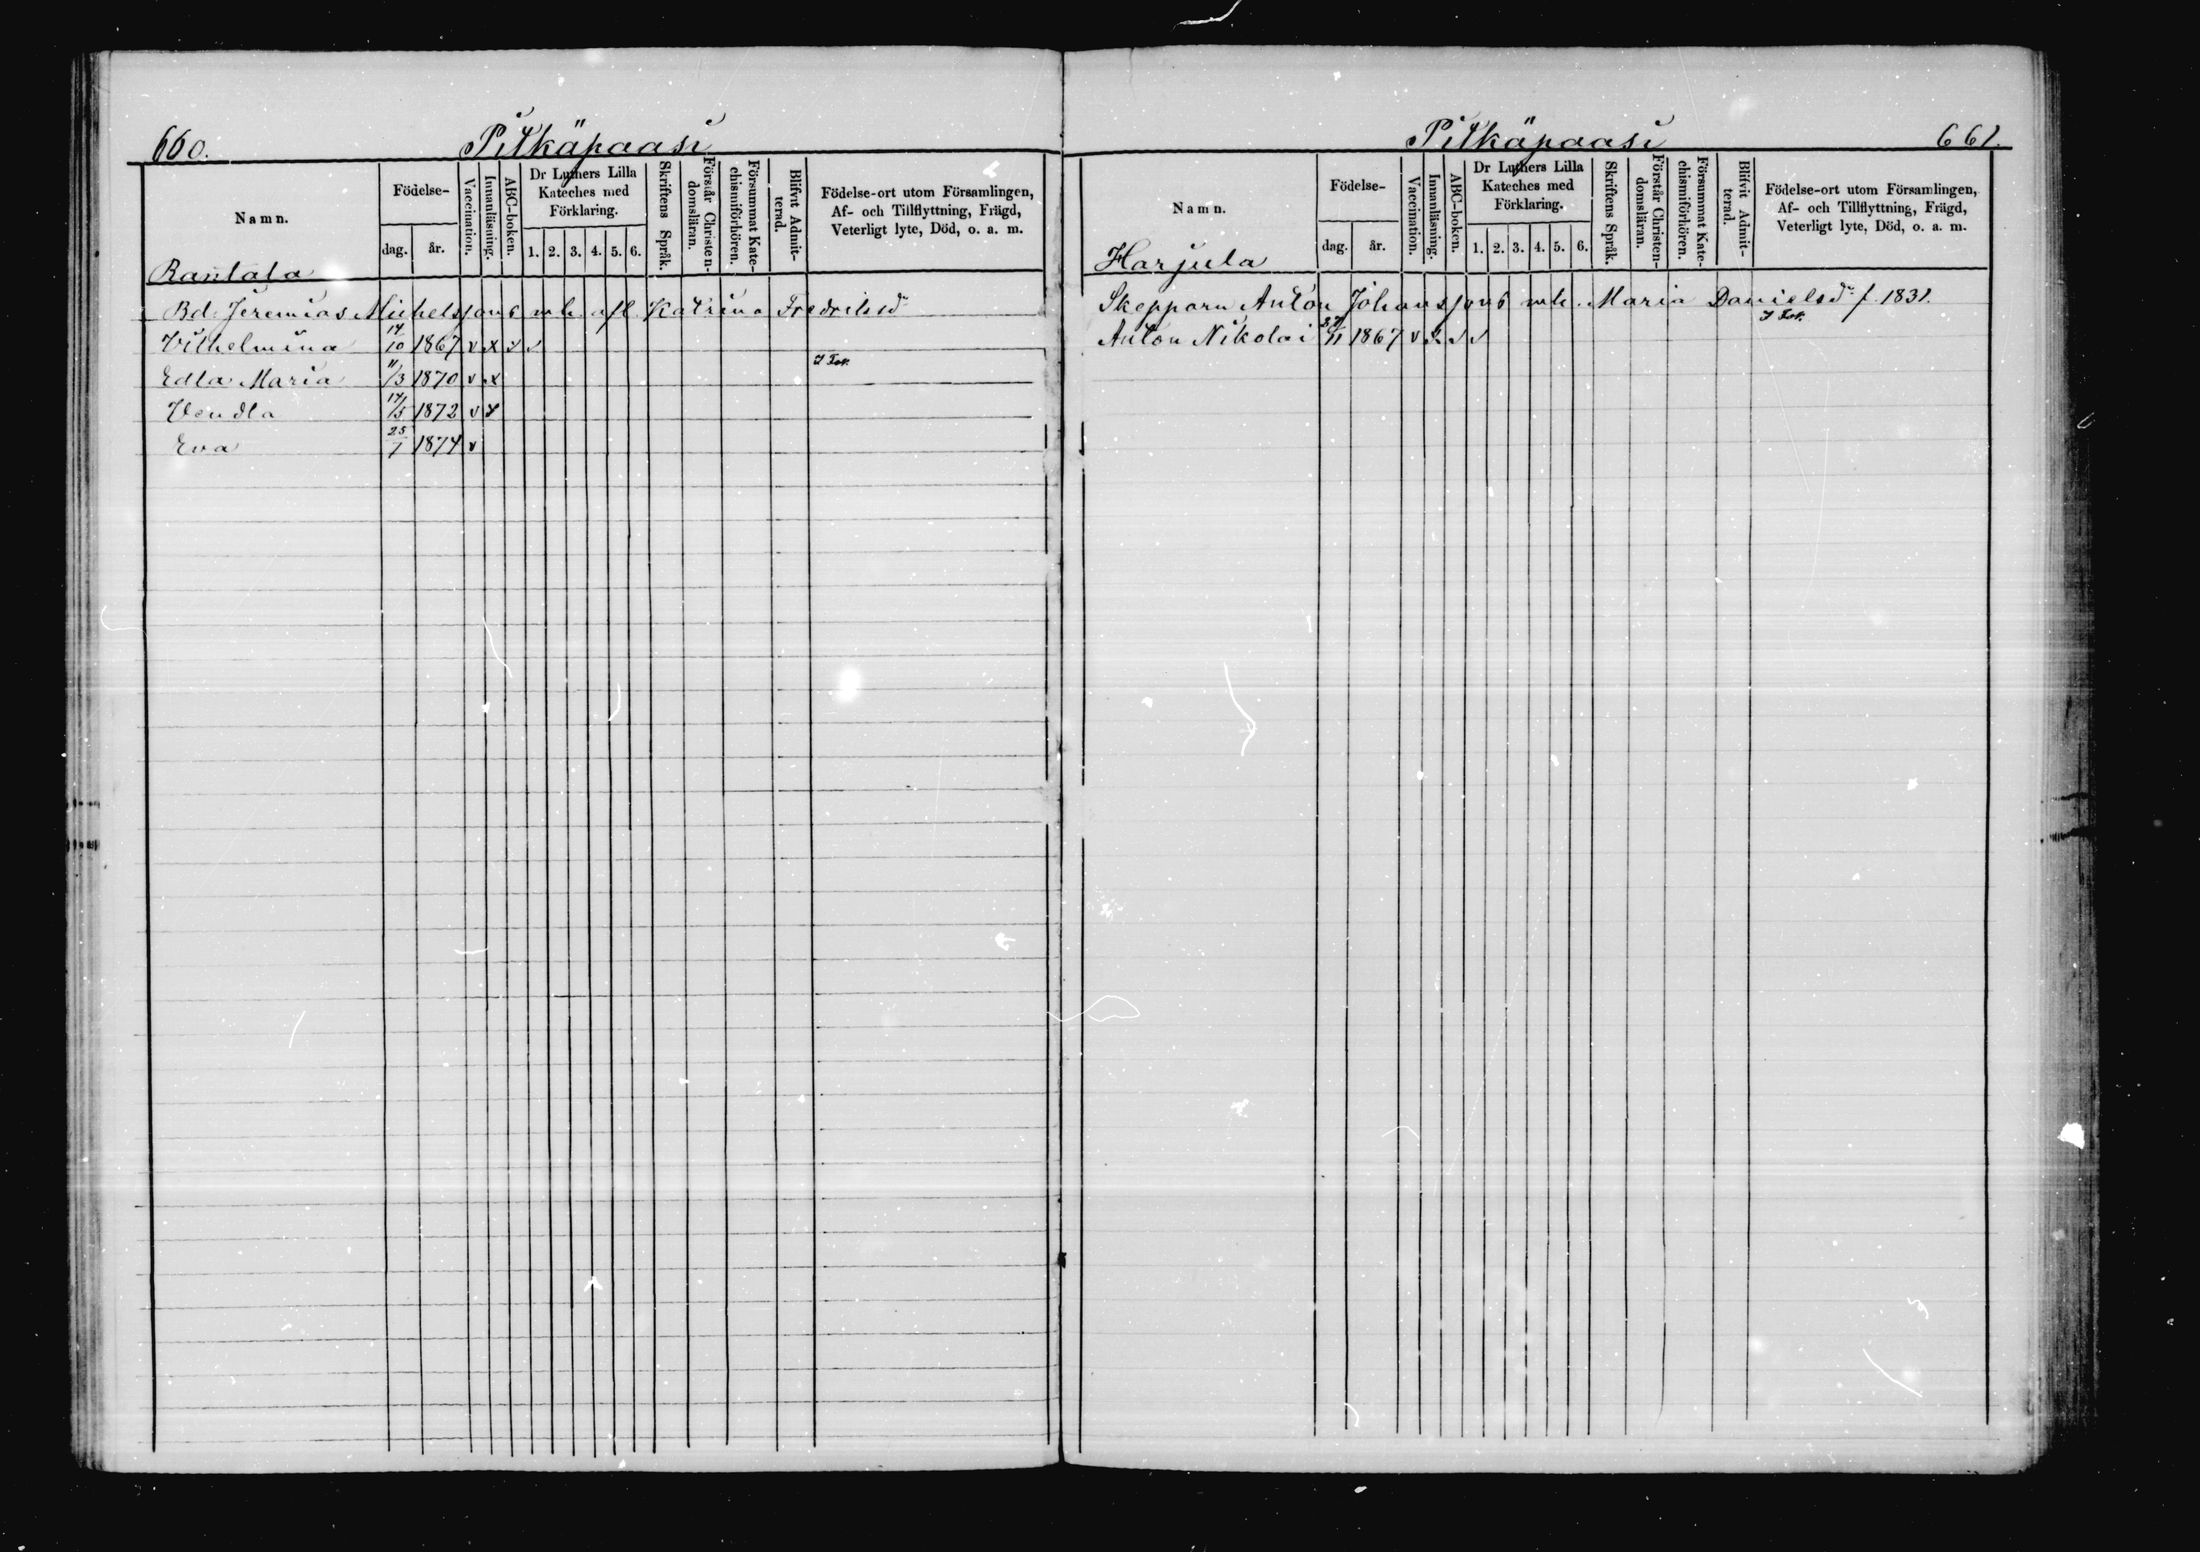 660. Pitkäpaasi
Namn. Födelse- dag. år. Vaccination. Innanläsning. ABC-boken. Dr Luthers Lilla Kateches med Förklaring. 1. 2. 3. 4. 5. 6. Skriftens Språk. Förstår Christendomsläran. Försummat Katechismiförhören. Blifvit Admitterad. Födelse-ort utom Församlingen, Af- och Tillflyttning, Frägd, Veterligt lyte, Död, o. a. m.
Rantala
Bd. Jeremias Michelssons m h. afl. Katrina Fredriksdr
Vilhelmina 14/10 1867 v x v v
Edla Maria 11/3 1870 v x
Vendla 17/5 1872 v x
Eva 25/7 1874 v
Pitkäpaasi 661.
Namn. Födelse- dag. år. Vaccination. Innanläsning. ABC-boken. Dr Luthers Lilla Kateches med Förklaring. 1. 2. 3. 4. 5. 6. Skriftens Språk. Förstår Christendomsläran. Försummat Katechismiförhören. Blifvit Admitterad. Födelse-ort utom Församlingen, Af- och Tillflyttning, Frägd, Veterligt lyte, Död, o. a. m.
Harjula
Skepparn Anton Johanssons m h. Maria Danielsdr f. 1831.
Anton Nikolai 27/11 1867 v x v v